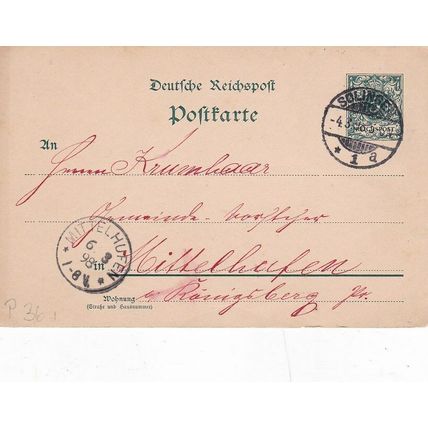 Deutsche Reichspost
Postkarte
SOLINGEN
-4.3.
REICHSPOST
* 1 a
An
Herrn Krumhaar
Gemeinde-Vorsteher
in Mittelhufen
b. Königsberg Pr.
MITTELHUFEN
6 3
98
* 7-8 V. *
Wohnung
(Straße und Hausnummer)
P 36